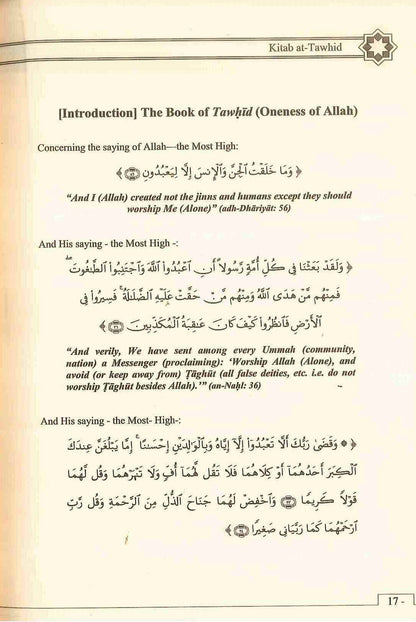 Kitab at-Tawhid
[Introduction] The Book of Tawḥīd (Oneness of Allah)
Concerning the saying of Allah—the Most High:
﴿ وَمَا خَلَقْتُ ٱلْجِنَّ وَٱلْإِنسَ إِلَّا لِيَعْبُدُونِ ۝٥٦ ﴾
“And I (Allah) created not the jinns and humans except they should
worship Me (Alone)” (adh-Dhāriyāt: 56)
And His saying - the Most High -:
﴿ وَلَقَدْ بَعَثْنَا فِى كُلِّ أُمَّةٍ رَّسُولًا أَنِ ٱعْبُدُوا۟ ٱللَّهَ وَٱجْتَنِبُوا۟ ٱلطَّـٰغُوتَ ۖ
فَمِنْهُم مَّنْ هَدَى ٱللَّهُ وَمِنْهُم مَّنْ حَقَّتْ عَلَيْهِ ٱلضَّلَـٰلَةُ ۚ فَسِيرُوا۟ فِى
ٱلْأَرْضِ فَٱنظُرُوا۟ كَيْفَ كَانَ عَـٰقِبَةُ ٱلْمُكَذِّبِينَ ۝٣٦ ﴾
“And verily, We have sent among every Ummah (community,
nation) a Messenger (proclaiming): ‘Worship Allah (Alone), and
avoid (or keep away from) Ṭāghūt (all false deities, etc. i.e. do not
worship Ṭāghūt besides Allah).’” (an-Naḥl: 36)
And His saying - the Most- High-:
﴿ ۞ وَقَضَىٰ رَبُّكَ أَلَّا تَعْبُدُوٓا۟ إِلَّآ إِيَّاهُ وَبِٱلْوَٰلِدَيْنِ إِحْسَـٰنًا ۚ إِمَّا يَبْلُغَنَّ عِندَكَ
ٱلْكِبَرَ أَحَدُهُمَآ أَوْ كِلَاهُمَا فَلَا تَقُل لَّهُمَآ أُفٍّ وَلَا تَنْهَرْهُمَا وَقُل لَّهُمَا
قَوْلًا كَرِيمًا ۝٢٣ وَٱخْفِضْ لَهُمَا جَنَاحَ ٱلذُّلِّ مِنَ ٱلرَّحْمَةِ وَقُل رَّبِّ
ٱرْحَمْهُمَا كَمَا رَبَّيَانِى صَغِيرًا ۝٢٤ ﴾
17 -